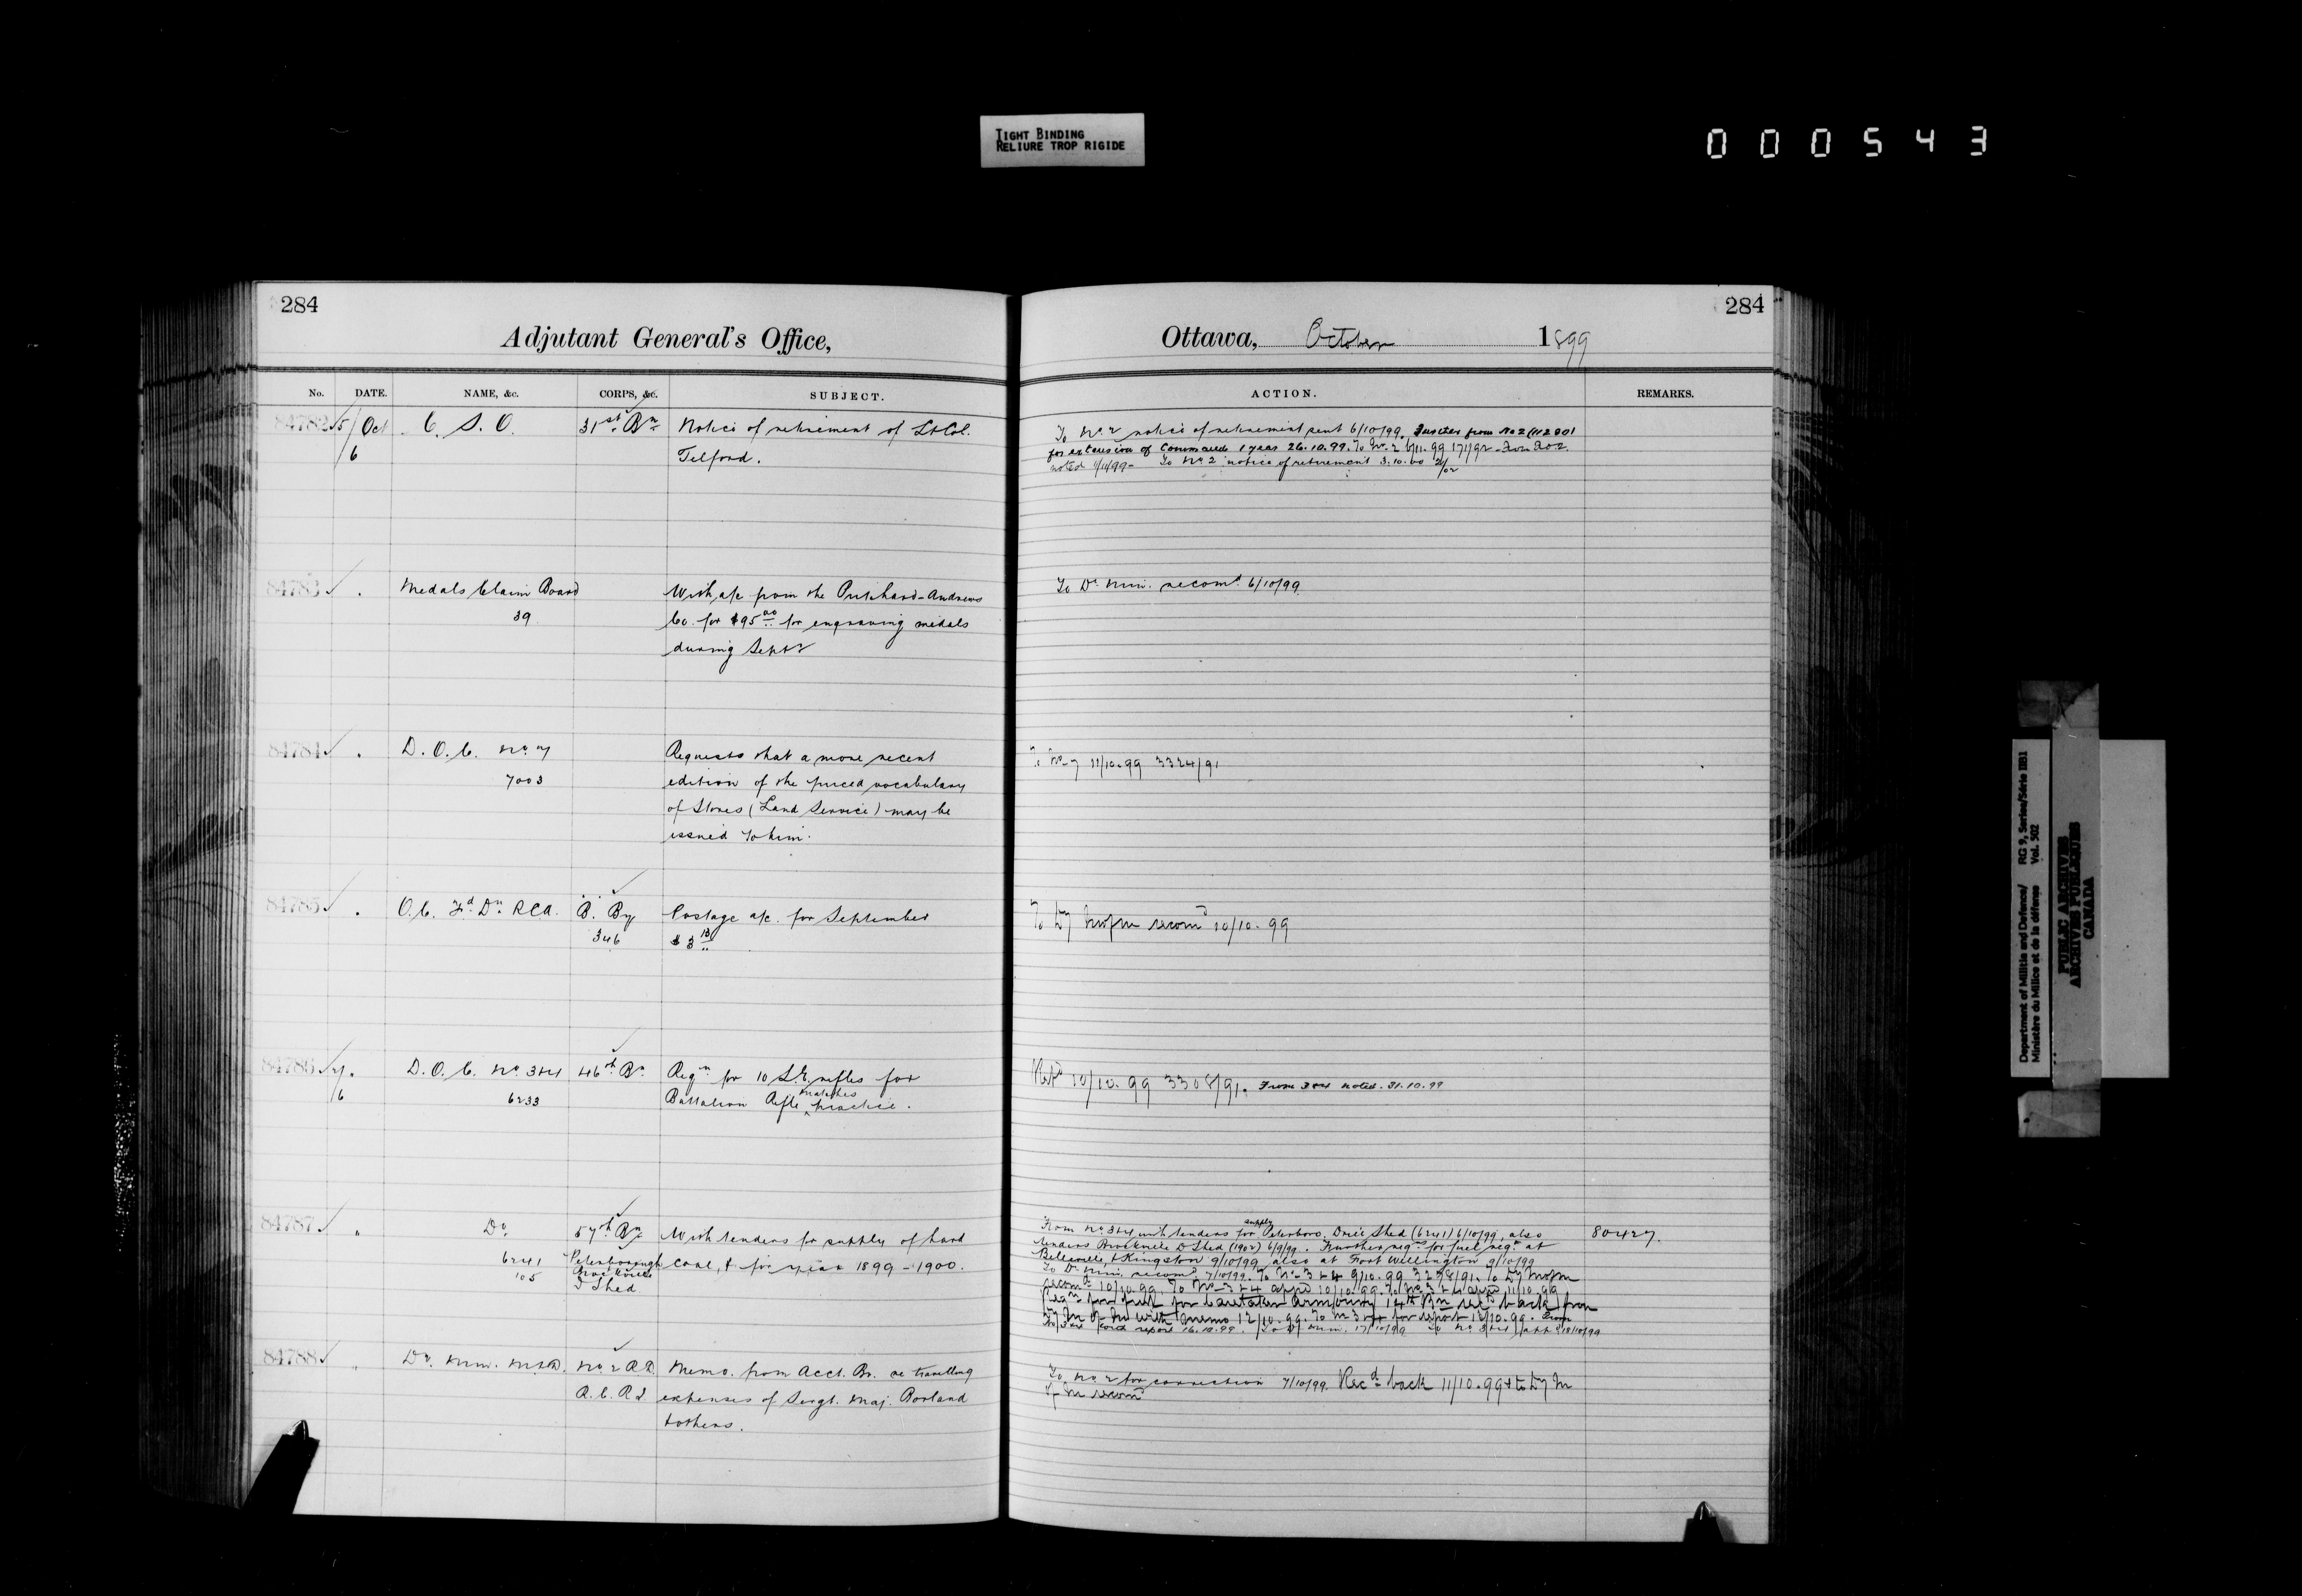 TIGHT BINDING
RELIURE TROP RIGIDE
000543
284
Adjutant General's Office,
No. DATE. NAME, &c. CORPS, &c. SUBJECT.
84782 5/Oct C. S. O. 31st Bn Notice of retirement of Lt Col.
/6 Telford.
84783 Medals Claim Board With a/c from the Pritchard-Andrews
39 Co. for $95 00 for engraving medals
during Septr
84784 D. O. C. No 7 Requests that a more recent
7003 edition of the priced vocabulary
of Stores (Land Service) may be
issued to him.
84785 O.C. Fd Dn RCA. B. By Postage a/c. for September
346 $3 13
84786 D. O. C. No 3&4 46th Bn Reqn for 10 L.E. rifles for
/6 6233 Battalion Rifle matches practice.
84787 Do 57th Bn With tenders for supply of hard
6241 Peterborough coal, & for year 1899-1900.
105 Brockville
D Shed
84788 Dy. Min. M&D. No 2 R.D. Memo. from Acct. Br. re travelling
R.C.R I expenses of Sergt. Maj. Borland
& others.
284
Ottawa, October 1899
ACTION. REMARKS.
To No 2 notice of retirement sent 6/10/99. Further from No 2 (11290)
for extension of Command 1 year 26.10.99. To No. 2 6/11.99 171/92
noted 9/11/99 - To No 2 notice of retirement 3.10.00
To Dy. Min. recomd 6/10/99
To No 7 11/10.99 3324/91
To Dy Mofm recomd 10/10.99
Repd 10/10.99 3308/91. From 3&4 noted. 31.10.99
From No 3&4 with tenders for supply Peterboro. Drill Shed (6241) 6/10/99, also 80427.
tenders Brockville D Shed (1902) 6/9/99. Further reqn for fuel reqd at
Belleville, & Kingston 9/10/99 also at Fort Wellington 9/10/99
To Dy Min. recomd 7/10/99. To No 3&4 9/10.99 3298/91. To Dy Mofm
recomd 10/10.99. To No 3&4 apprd 10/10.99. To No 3&4 apprd 11/10.99
Reqn for fuel for Caretaker Armoury 14th Bn recd back from
Dy M of M with memo 12/10.99. To No 3&4 for report 12/10.99. From
No 3&4 with report 16.10.99. To Dy Min. 17/10/99 To No 3&4 18/10/99
To No 2 for correction 7/10/99. Recd back 11/10.99 & to Dy M
of M recomd
Department of Militia and Defence/ RG 9, Series/Série IIB1
Ministère du Milice et de la défense Vol. 502
PUBLIC ARCHIVES
ARCHIVES PUBLIQUES
CANADA